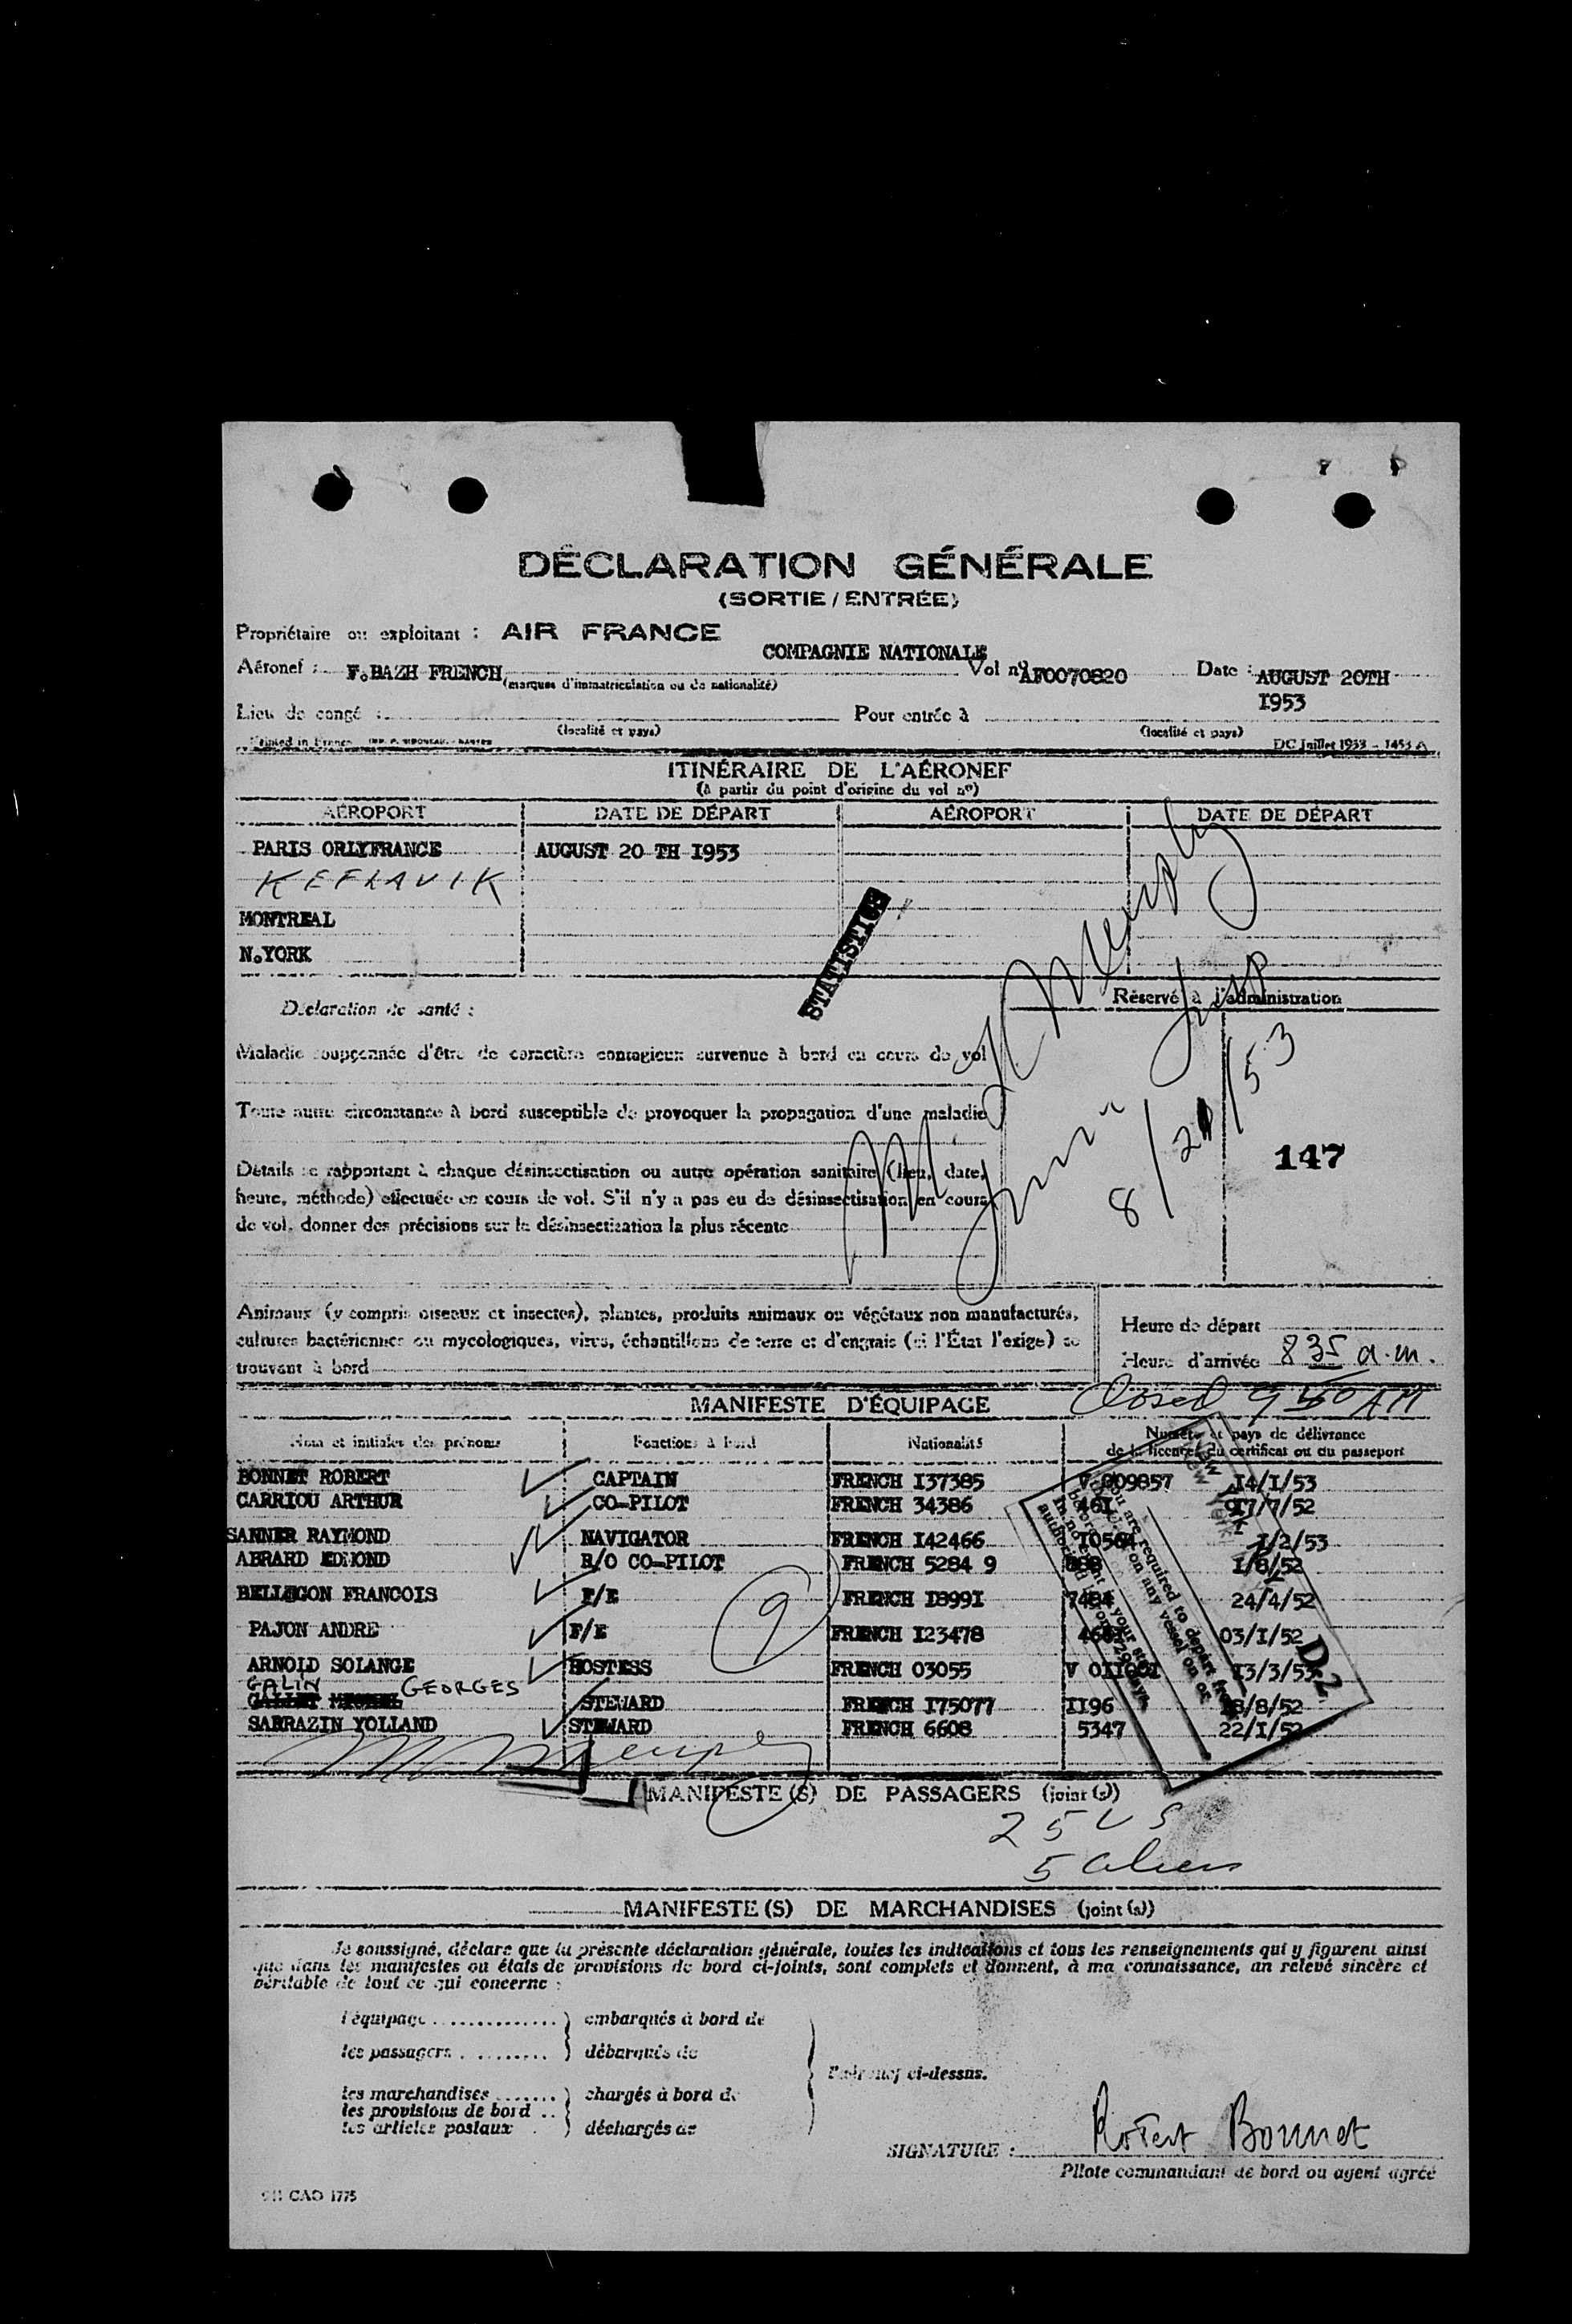 DÉCLARATION GÉNÉRALE
(SORTIE / ENTRÉE)
Propriétaire ou exploitant : AIR FRANCE
COMPAGNIE NATIONALE
Aéronef : F.BAZH FRENCH Vol nº AF0070820 Date : AUGUST 20TH
(marques d'immatriculation ou de nationalité)
I953
Lieu de congé : Pour entrée à
(localité et pays) (localité et pays)
Printed in France DC Juillet 1953 - 1453 A
ITINÉRAIRE DE L'AÉRONEF
(à partir du point d'origine du vol nº)
AÉROPORT DATE DE DÉPART AÉROPORT DATE DE DÉPART
PARIS ORLYFRANCE AUGUST 20 TH I953
KEFLAVIK
MONTREAL
N.YORK
STATISTICS
Déclaration de santé :
Réservé à l'administration
Maladie soupçonnée d'être de caractère contagieux survenue à bord en cours de vol
Toute autre circonstance à bord susceptible de provoquer la propagation d'une maladie
8/21/53
147
Détails se rapportant à chaque désinsectisation ou autre opération sanitaire (lieu, date,
heure, méthode) effectuée en cours de vol. S'il n'y a pas eu de désinsectisation en cours
de vol, donner des précisions sur la désinsectisation la plus récente
Animaux (y compris oiseaux et insectes), plantes, produits animaux ou végétaux non manufacturés,
cultures bactériennes ou mycologiques, virus, échantillons de terre et d'engrais (si l'État l'exige) se
trouvant à bord
Heure de départ
Heure d'arrivée 8 35 a.m.
MANIFESTE D'ÉQUIPAGE
Closed 9 50 AM
Nom et initiales des prénoms Fonctions à bord Nationalité Numéro et pays de délivrance
de la licence, du certificat ou du passeport
BONNET ROBERT CAPTAIN FRENCH I37385 V 009857 I4/I/53
CARRIOU ARTHUR CO-PILOT FRENCH 34386 46I I7/7/52
SANNER RAYMOND NAVIGATOR FRENCH I42466 I0564 I/2/53
ABRARD EDMOND R/O CO-PILOT FRENCH 5284 9 I/8/52
BELLUGON FRANCOIS F/E FRENCH I899I 7484 24/4/52
PAJON ANDRE F/E FRENCH I23478 03/I/52
ARNOLD SOLANGE HOSTESS FRENCH 03055 I3/3/53
GALIN GEORGES
STEWARD FRENCH I75077 II96 I8/8/52
SARRAZIN YOLLAND STEWARD FRENCH 6608 5347 22/I/52
9
New York
You are required to depart from
on any vessel on or
in no event is your stay
D-2
MANIFESTE (S) DE PASSAGERS (joint (s))
25 US
5 aliens
MANIFESTE (S) DE MARCHANDISES (joint (s))
Je soussigné, déclare que la présente déclaration générale, toutes les indications et tous les renseignements qui y figurent ainsi
que dans les manifestes ou états de provisions de bord ci-joints, sont complets et donnent, à ma connaissance, un relevé sincère et
véritable de tout ce qui concerne :
l'équipage .............. embarqués à bord de
les passagers ......... débarqués de
l'aéronef ci-dessus.
les marchandises ....... chargés à bord de
les provisions de bord ..
les articles postaux . déchargés de
SIGNATURE : Robert Bonnet
Pilote commandant de bord ou agent agréé
CAO 1775